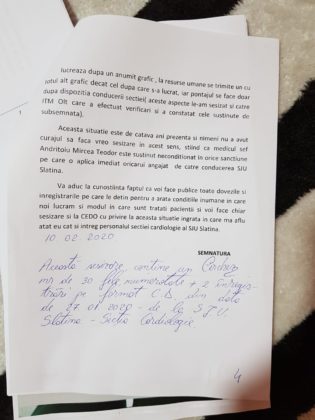 lucreaza dupa un anumit grafic , la resurse umane se trimite un cu
totul alt grafic decat cel dupa care s-a lucrat, iar pontajul se face doar
dupa dispozitia conducerii sectiei( aceste aspecte le-am sesizat si catre
ITM Olt care a efectuat verificari si a constatat cele sustinute de
subsemnata).
Aceasta situatie este de catava ani prezenta si nimeni nu a avut
curajul sa faca vreo sesizare in acest sens, stiind ca medicul sef
Andritoiu Mircea Teodor este sustinut neconditionat in orice sanctiune
pe care o aplica imediat oricarui angajat de catre conducerea SJU
Slatina.
Va aduc la cunostiinta faptul ca voi face publice toate dovezile si
inregistrarile pe care le detin pentru a arata conditiile inumane in care
noi lucram si modul in care sunt tratati pacientii si voi face chiar
sesizare si la CEDO cu privire la aceasta situatie ingrata in care ma aflu
atat eu cat si intreg personalul sectiei cardiologie ai SJU Slatina.
10.02.2020
SEMNATURA
Această sesizare contine un
nr de 30 file numerotate + 2 înregis-
trări pe format C.D. din data
de 27.01.2020 - de la S.J.U.
Slatina - Sectia Cardiologie
4
1